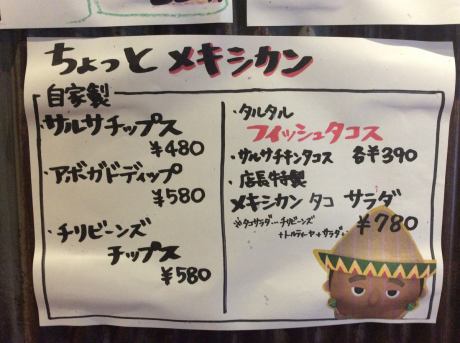 ちょっと メキシカン
自家製
・サルサチップス
¥480
・アボガドディップ
¥580
・チリビーンズ
チップス
¥580
・タルタル
フィッシュタコス
・サルサチキンタコス 各¥390
・店長特製
メキシカン タコ サラダ
¥780
※タコサラダ…チリビーンズ
+トルティーヤ+サラダ